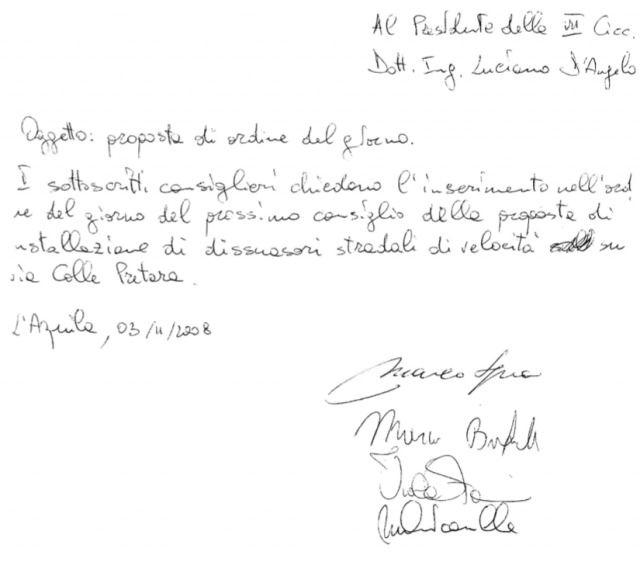 Al Presidente della VII Circ.
Dott. Ing. Luciano D'Angelo
Oggetto: proposta di ordine del giorno.
I sottoscritti consiglieri chiedono l'inserimento nell'ord
ne del giorno del prossimo consiglio della proposta di
nstallazione di dissuasori stradali di velocità su
via Colle Pretara.
L'Aquila, 03/11/2008
Marco